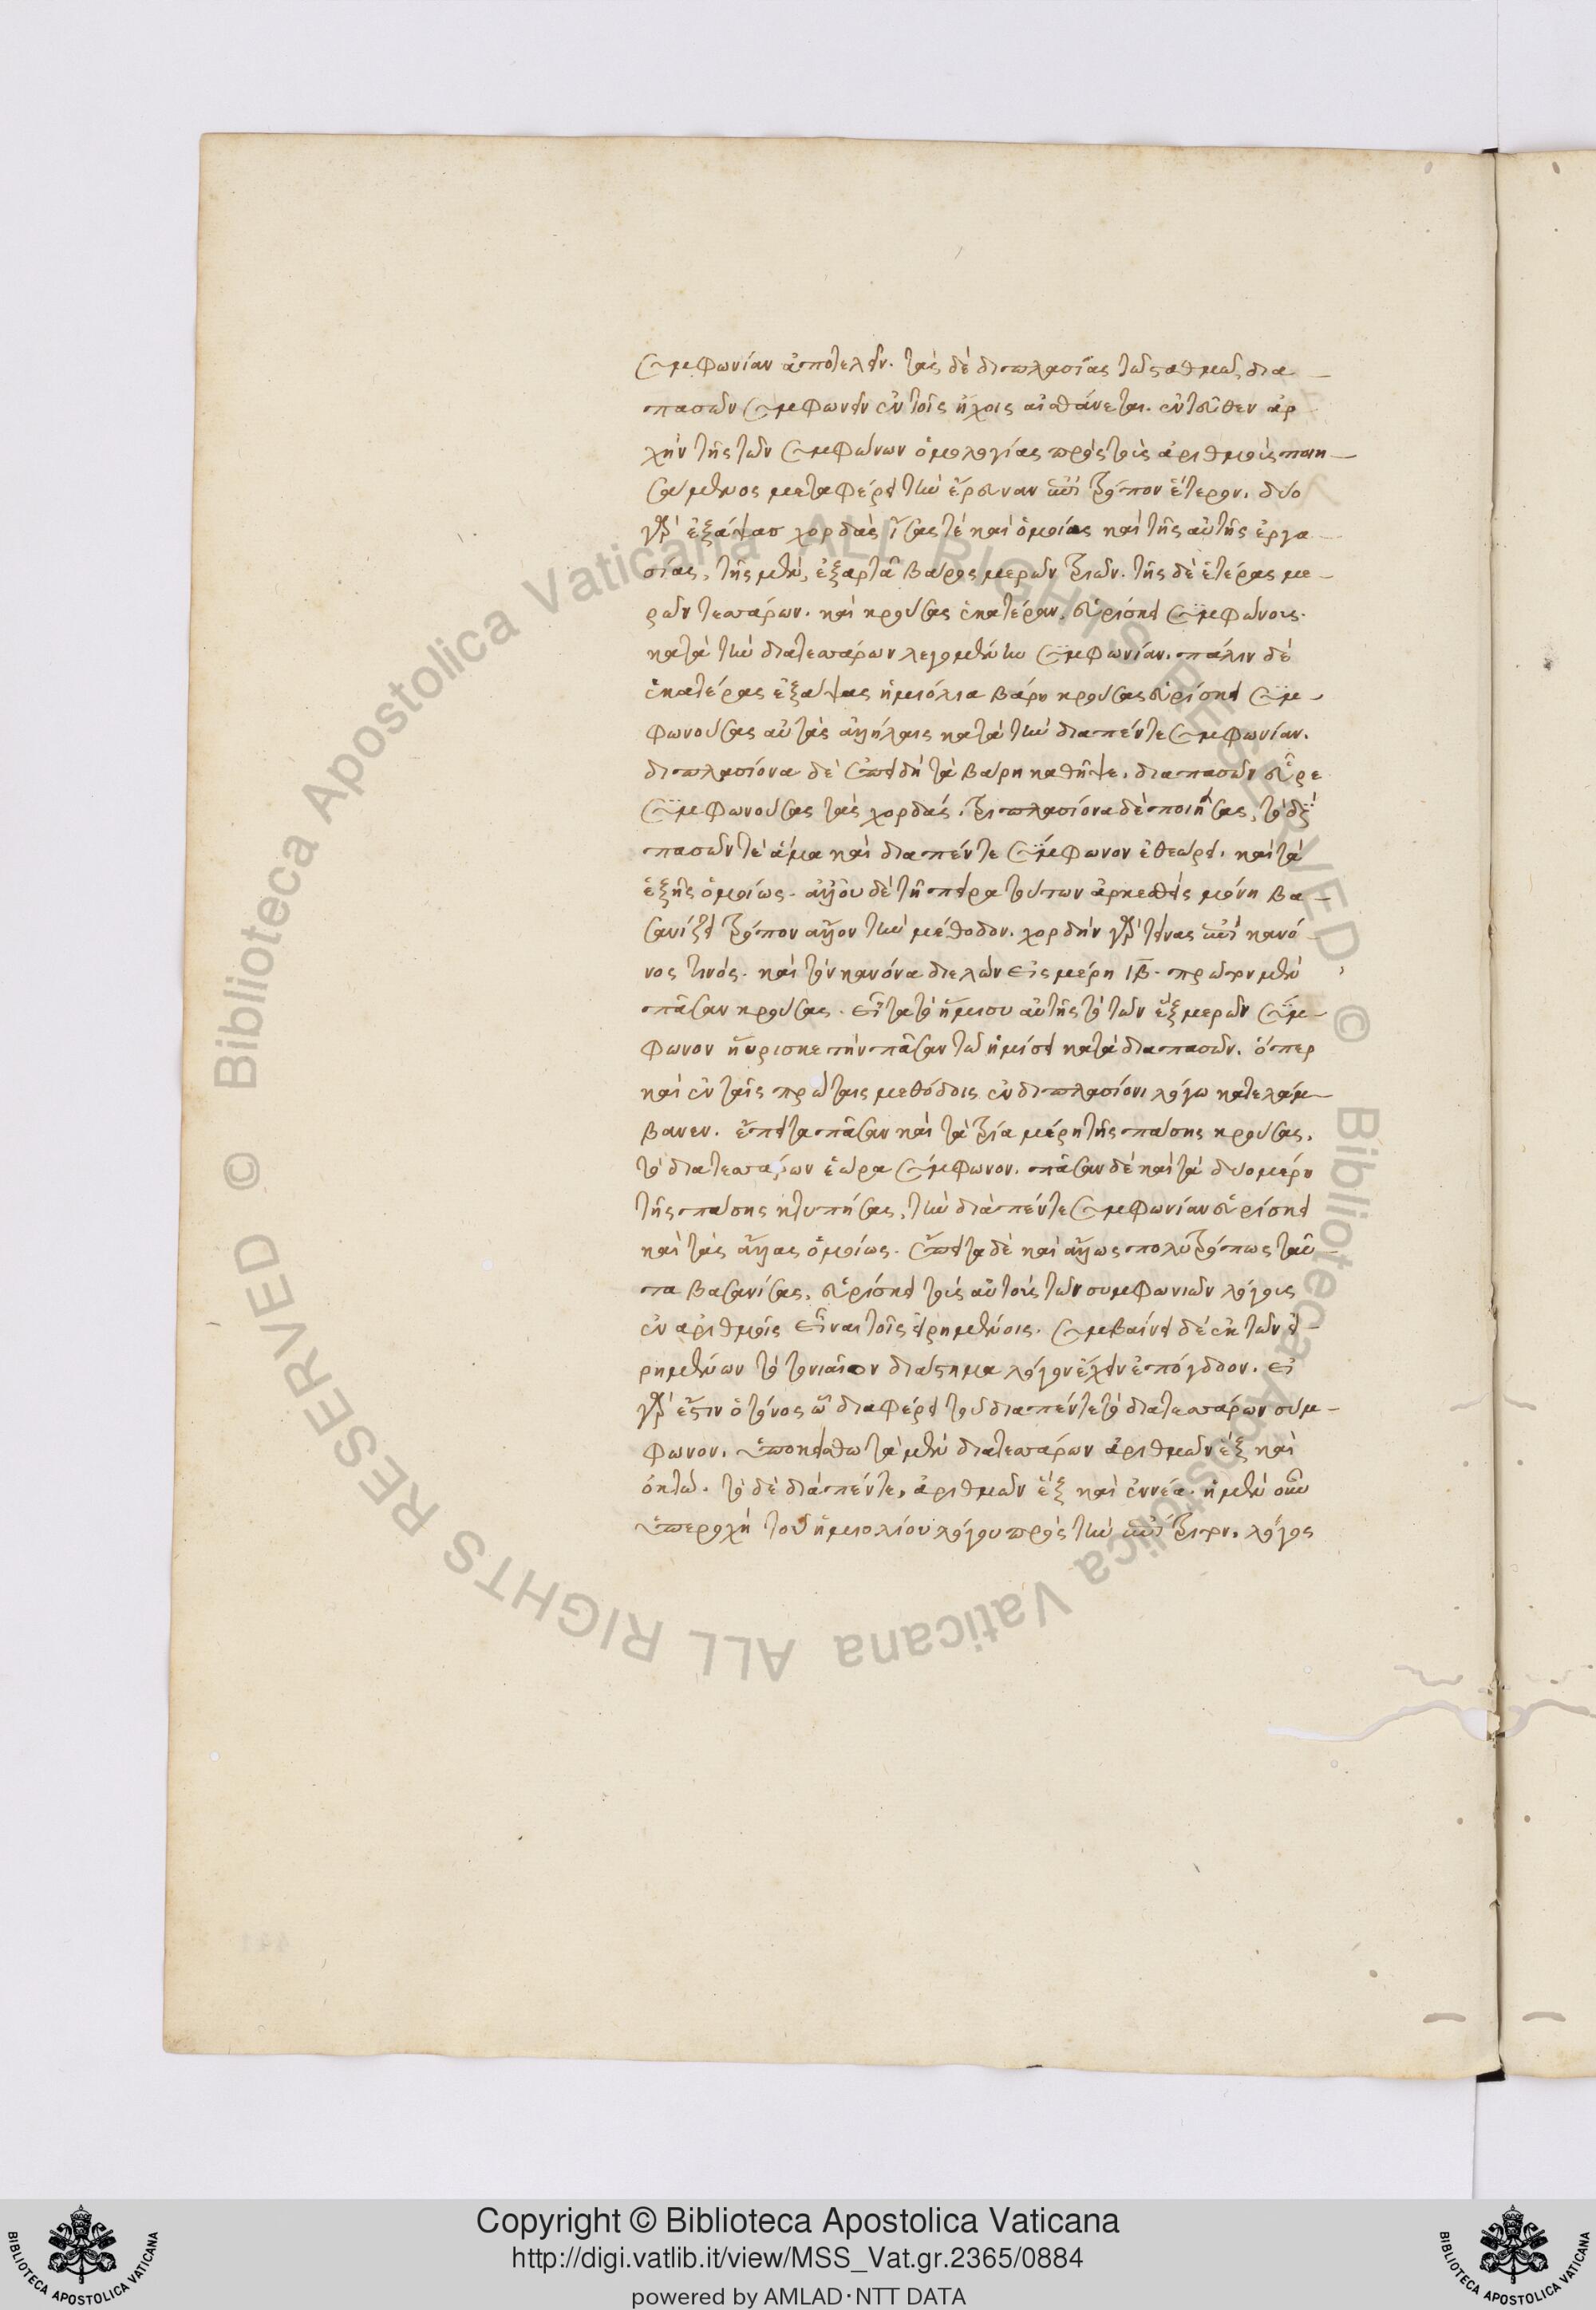 συμφωνίαν ἀποτελεῖν. τὰς δὲ διπλασίας τῶ σταθμῶ, δια
πασῶν συμφωνεῖν ἐν τοῖς ἤχοις αἰσθάνεται. ἐντεῦθεν ἀρ
χὴν τῆς τῶν συμφώνων ὁμολογίας πρὸς τοὺς ἀριθμοὺς ποιη
σάμενος μεταφέρει τὴν ἔρευναν ἐπὶ τρόπον ἕτερον. δύο
γὰρ ἐξάψας χορδὰς ἴσας τὲ καὶ ὁμοίας καὶ τῆς αὐτῆς ἐργα
σίας, τῆς μὲν, ἐξαρτᾶ βάρος μερῶν τριῶν. τῆς δὲ ἑτέρας με
ρῶν τεσσάρων. καὶ κρούσας ἑκατέραν, εὑρίσκει συμφώνους.
κατὰ τὴν διατεσσάρων λεγομένην συμφωνίαν. πάλιν δὲ
ἑκατέρας ἐξάψας ἡμιόλια βάρη κρούσας εὑρίσκει συμ
φωνούσας αὐτὰς ἀλλήλαις κατὰ τὴν διαπέντε συμφωνίαν.
διπλασίονα δὲ ἐπειδὴ τὰ βάρη καθῆψε, διαπασῶν εὗρε
συμφωνούσας τὰς χορδάς. τριπλασίονα δὲ ποιήσας, τὸ διὰ
πασῶν τὲ ἅμα καὶ διαπέντε σύμφωνον ἐθεώρει. καὶ τὰ
ἑξῆς ὁμοίως. ἀλλ' οὐ δὲ τῆ πείρα τούτων ἀρκεσθεὶς μόνη βα
σανίζει τρόπον ἄλλον τὴν μέθοδον. χορδὴν γὰρ τείνας ἐπὶ κανό
νος τινός. καὶ τὸν κανόνα διελὼν εἰς μέρη ιβ. πρῶτον μὲν
πᾶσαν κρούσας. εἶτα τὸ ἥμισυ αὐτῆς τὸ τῶν ἓξ μερῶν σύμ
φωνον ηὕρισκε τὴν πᾶσαν τῶ ἡμίσει κατὰ διαπασῶν. ὅπερ
καὶ ἐν ταῖς πρώταις μεθόδοις ἐν διπλασίονι λόγω κατελάμ
βανεν. ἔπειτα πᾶσαν καὶ τὰ τρία μέρη τῆς πάσης κρούσας,
τὸ διατεσσάρων ἑώρα σύμφωνον. πᾶσαν δὲ καὶ τὰ δυο μέρη
τῆς πάσης κτυπήσας, τὴν διαπέντε συμφωνίαν εὑρίσκει
καὶ τὰς ἄλλας ὁμοίως. ἔπειτα δὲ καὶ ἄλλως πολυτρόπως ταῦ
τα βασανίσας, εὑρίσκει τοὺς αὐτοὺς τῶν συμφωνιῶν λόγους
ἐν ἀριθμοῖς εἶναι τοῖς εἰρημένοις. συμβαίνει δὲ ἐκ τῶν εἰ
ρημένων τὸ τονιαῖον διάστημα λόγον ἔχειν ἐπόγδοον. εἰ
γὰρ ἔστιν ὁ τόνος ὧ διαφέρει τοῦ διαπέντε τὸ διατεσσάρων σύμ
φωνον. ὑποκείσθω τὰ μὲν διατεσσάρων ἀριθμῶν ἓξ καὶ
ὀκτώ. τὸ δὲ διάπέντε, ἀριθμῶν ἓξ καὶ ἐννέα. ἡ μὲν οὖν
ὑπεροχὴ τοῦ ἡμιολίου λόγου πρὸς τὴν ἐπίτριτον. λόγος
© Biblioteca Apostolica Vaticana ALL RIGHTS RESERVED © Biblioteca Apostolica Vaticana ALL RIGHTS RESERVED
BIBLIOTECA APOSTOLICA VATICANA
Copyright © Biblioteca Apostolica Vaticana
http://digi.vatlib.it/view/MSS_Vat.gr.2365/0884
powered by AMLAD·NTT DATA
BIBLIOTECA APOSTOLICA VATICANA